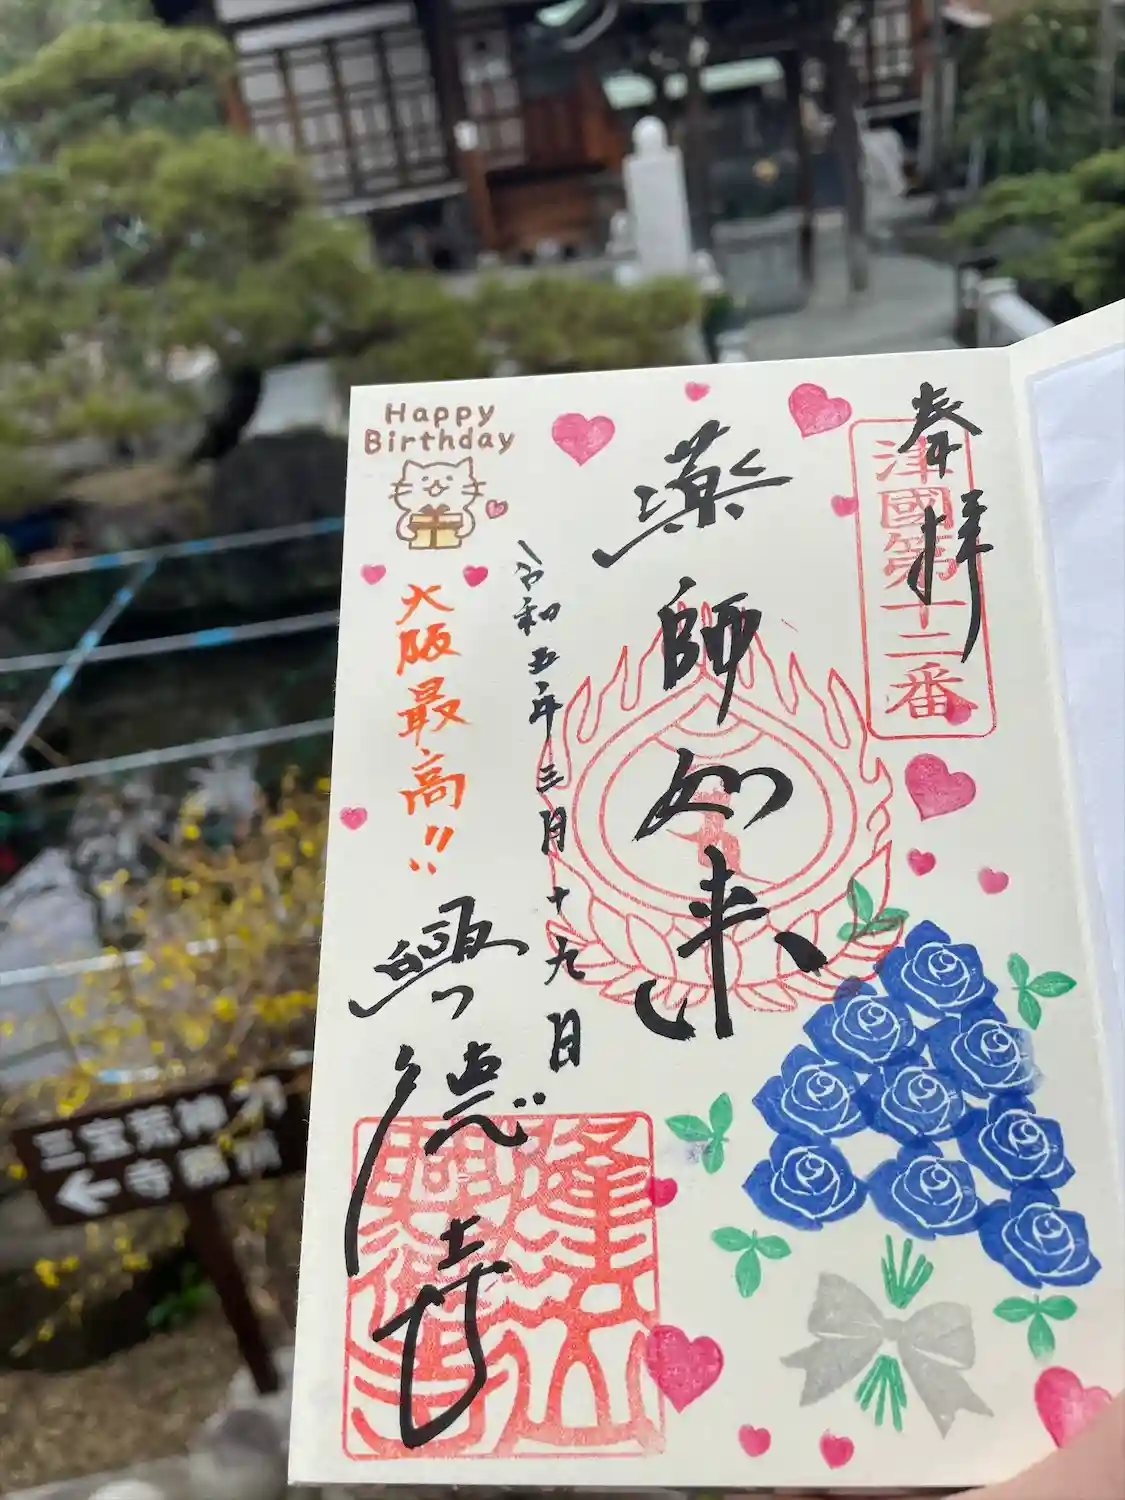 奉拝
津國第十二番
薬師如来
令和五年三月十九日
Happy
Birthday
大阪最高!!
興徳寺
隆
山
興徳寺
三宝荒神